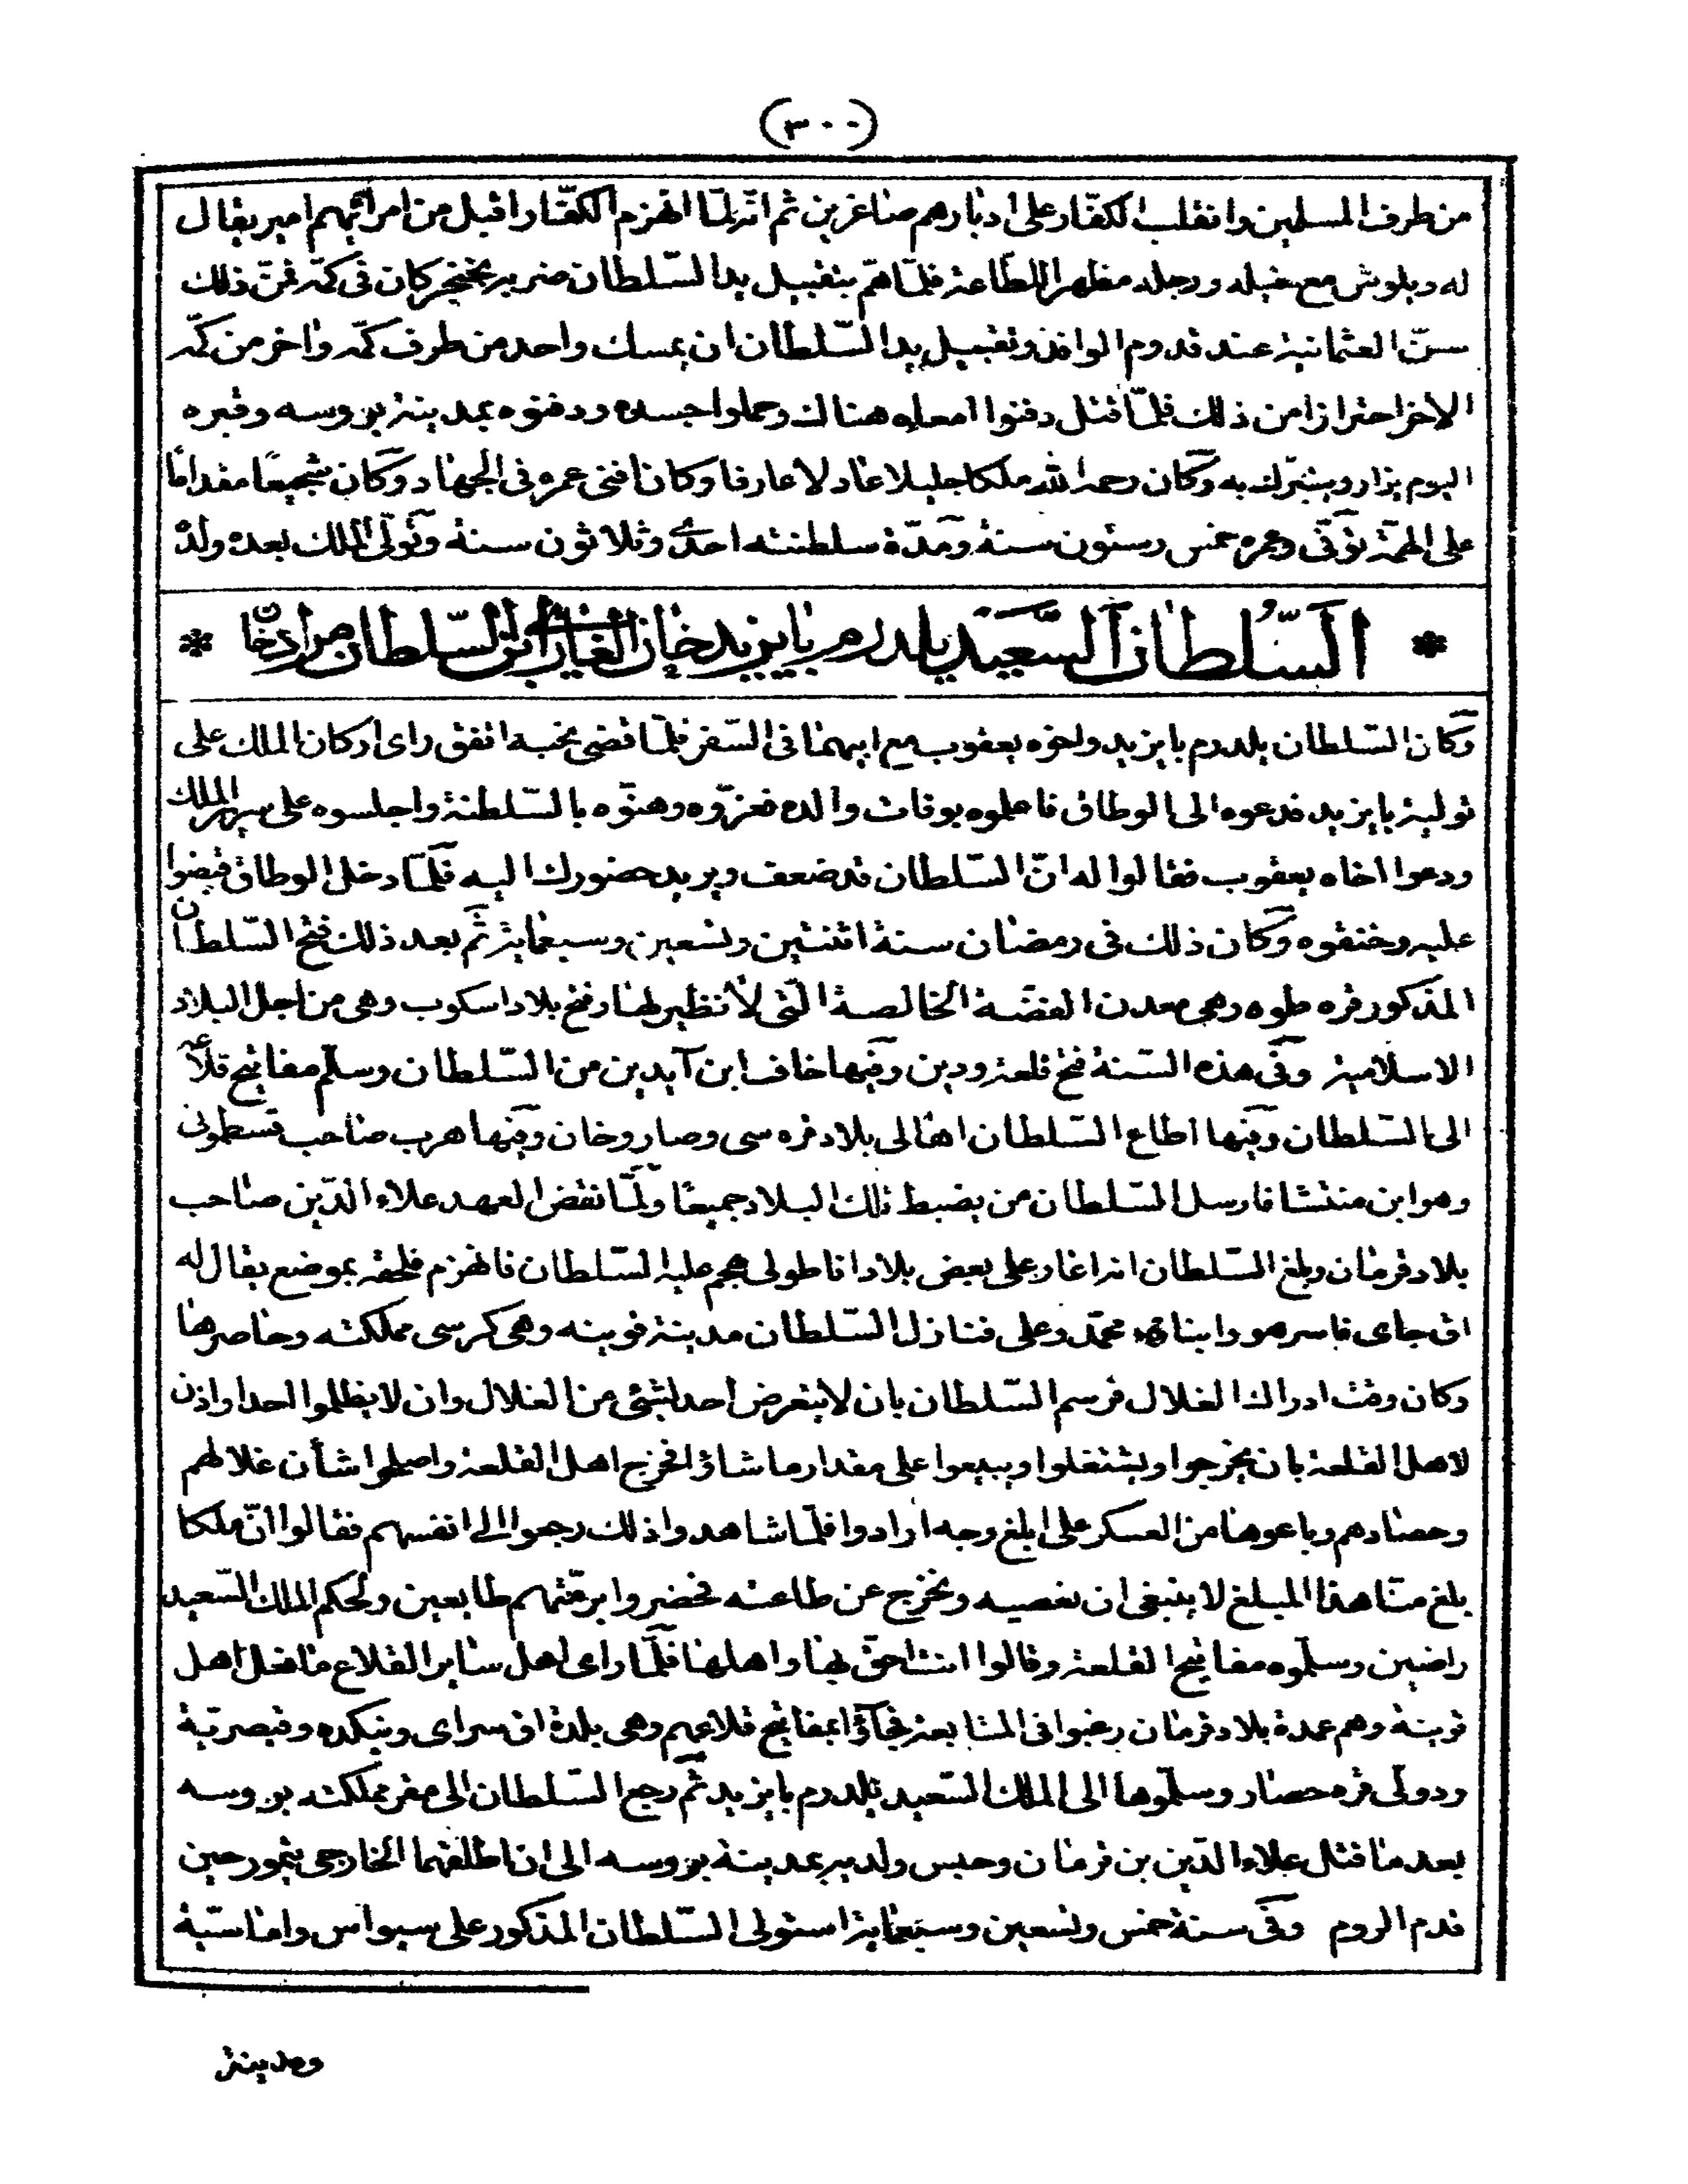 (٣٠٠)
من طرف المسلمين وانقلب الكفار على ادبارهم صاغرين ثم انه لما انهزم الكفار اقبل من امرائهم امير يقال
له ديلوش مع خيله ورجله مظهرا للطاعة فلما هم بتقبيل يد السلطان ضربه بخنجر كان فى كمه فمن ذلك
سن العثمانية عند قدوم الوافد وتقبيل يد السلطان ان يمسك واحد من طرف كمه واخر من كمه
الاخر احترازا من ذلك فلما قتل دفنوا امعاه هناك وحملوا جسده ودفنوه بمدينة بروسه وقبره
اليوم يزار ويتبرك به وكان رحمه الله ملكا جليلا عادلا عارفا وكان افنى عمره فى الجهاد وكان شجيعا مقداما
على الهمة توفى وعمره خمس وستون سنة ومدة سلطنته احدى وثلاثون سنة وتولى الملك بعده ولده
* السلطان السعيد يلدرم بايزيد خان الغازى ابن السلطان مراد خان *
وكان السلطان يلدرم بايزيد واخوه يعقوب مع ابيهما فى السفر فلما قضى نحبه اتفق راى اركان الملك على
تولية بايزيد فدعوه الى الوطاق فاعلموه بوفات والده فعزوه وهنوه بالسلطنة واجلسوه على سرير الملك
ودعوا اخاه يعقوب فقالوا له ان السلطان قد ضعف ويريد حضورك اليه فلما دخل الوطاق قبضوا
عليه وخنقوه وكان ذلك فى رمضان سنة اثنتين وتسعين وسبعماية ثم بعد ذلك فتح السلطان
المذكور قره طوه وهى معدن الفضة الخالصة التى لا نظير لها وفتح بلاد اسكوب وهى من اجل البلاد
الاسلامية وفى هذه السنة فتح قلعة ودين وفيها خاف ابن آيدين من السلطان وسلم مفاتيح قلاعه
الى السلطان وفيها اطاع السلطان اهالى بلاد قره سى وصاروخان وفيها هرب صاحب قسطمونى
وهو ابن منتشا فارسل السلطان من يضبط تلك البلاد جميعا ولما نقض العهد علاء الدين صاحب
بلاد قرمان وبلغ السلطان انه اغار على بعض بلاد اناطولى هجم عليه السلطان فانهزم فلحقه بموضع يقال له
اق جاى فاسر هو وابناه محمد وعلى فنازل السلطان مدينة قوينه وهى كرسى مملكته وحاصرها
وكان وقت ادراك الغلال فرسم السلطان بان لا يتعرض احد لشئ من الغلال وان لا يظلموا احدا واذن
لاهل القلعة بان يخرجوا ويشتغلوا ويبيعوا على مقدار ما شاؤا فخرج اهل القلعة واصلحوا شأن غلالهم
وحصادهم وباعوها من العسكر على ابلغ وجه ارادوا فلما شاهدوا ذلك رجعوا الى انفسهم فقالوا ان ملكا
بلغ منا هذا المبلغ لا ينبغى ان نعصيه ونخرج عن طاعته فحضروا برمتهم طايعين ولحكم الملك السعيد
راضين وسلموه مفاتيح القلعة وقالوا انت احق بها واهلها فلما راى اهل ساير القلاع ما فعل اهل
قوينة وهم عمدة بلاد قرمان رغبوا فى المتابعة فجآؤا بمفاتيح قلاعهم وهى بلدة اق سراى ونيكده وقيصرية
ودولى قره حصار وسلموها الى الملك السعيد يلدرم بايزيد ثم رجع السلطان الى مقر مملكته بروسه
بعد ما قتل علاء الدين بن قرمان وحبس ولديه بمدينة بروسه الى ان اطلقهما الخارجى تيمور حين
قدم الروم وفى سنة خمس وتسعين وسبعماية استولى السلطان المذكور على سيواس واماسية
ومدينة